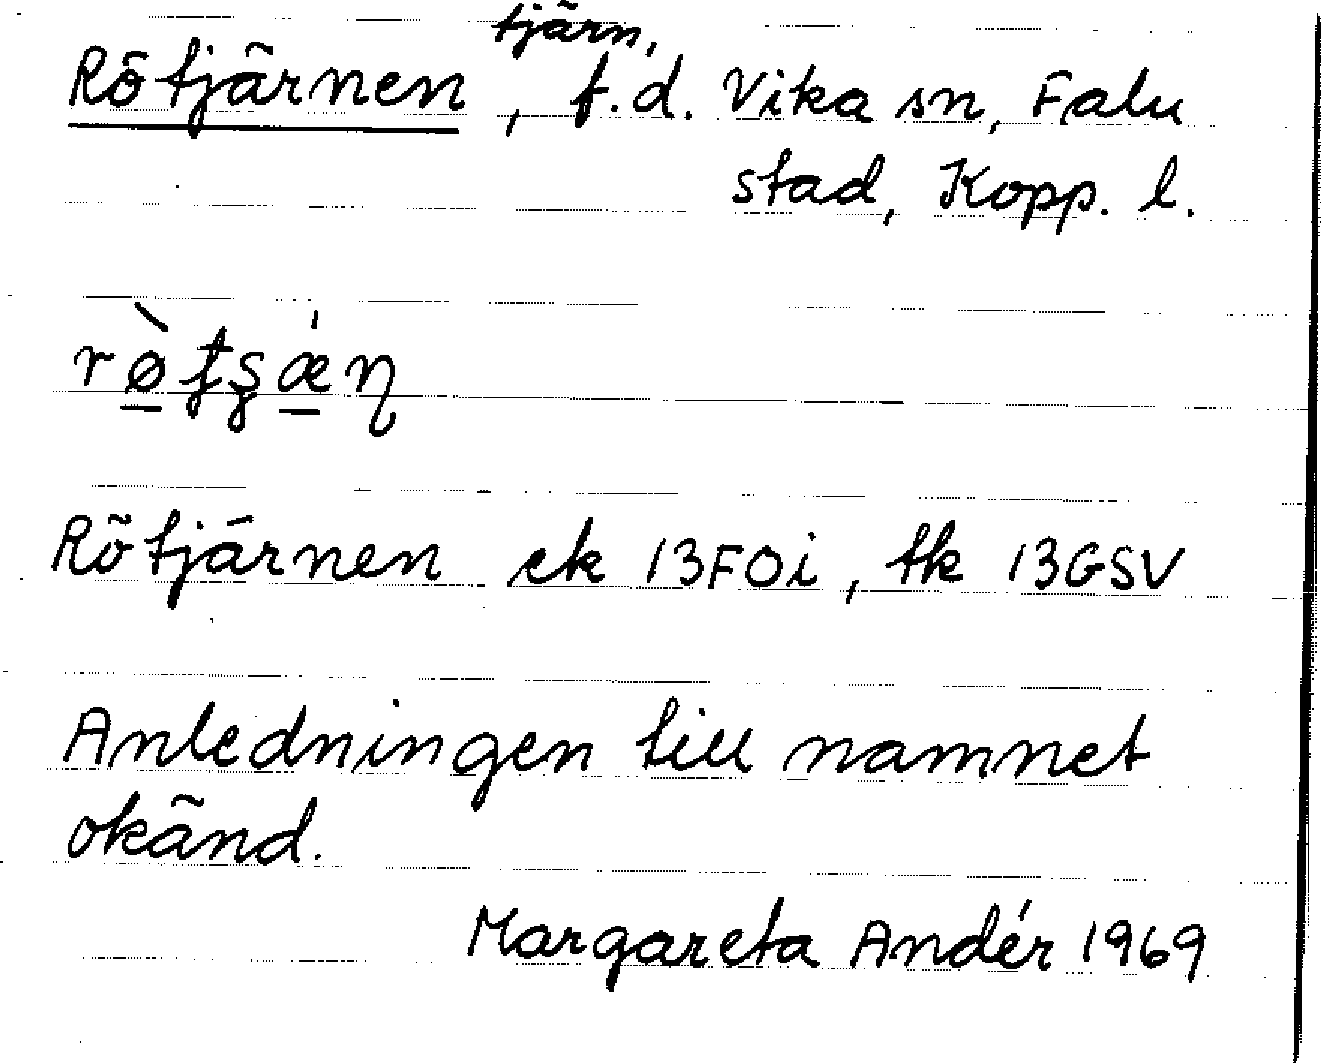 tjärn,
Rötjärnen, f.d. Vika sn, Falu
stad, Kopp. l.
Rötjärnen ek 13FOi, tk 13GSV
Anledningen till namnet
okänd.
Margareta Andér 1969